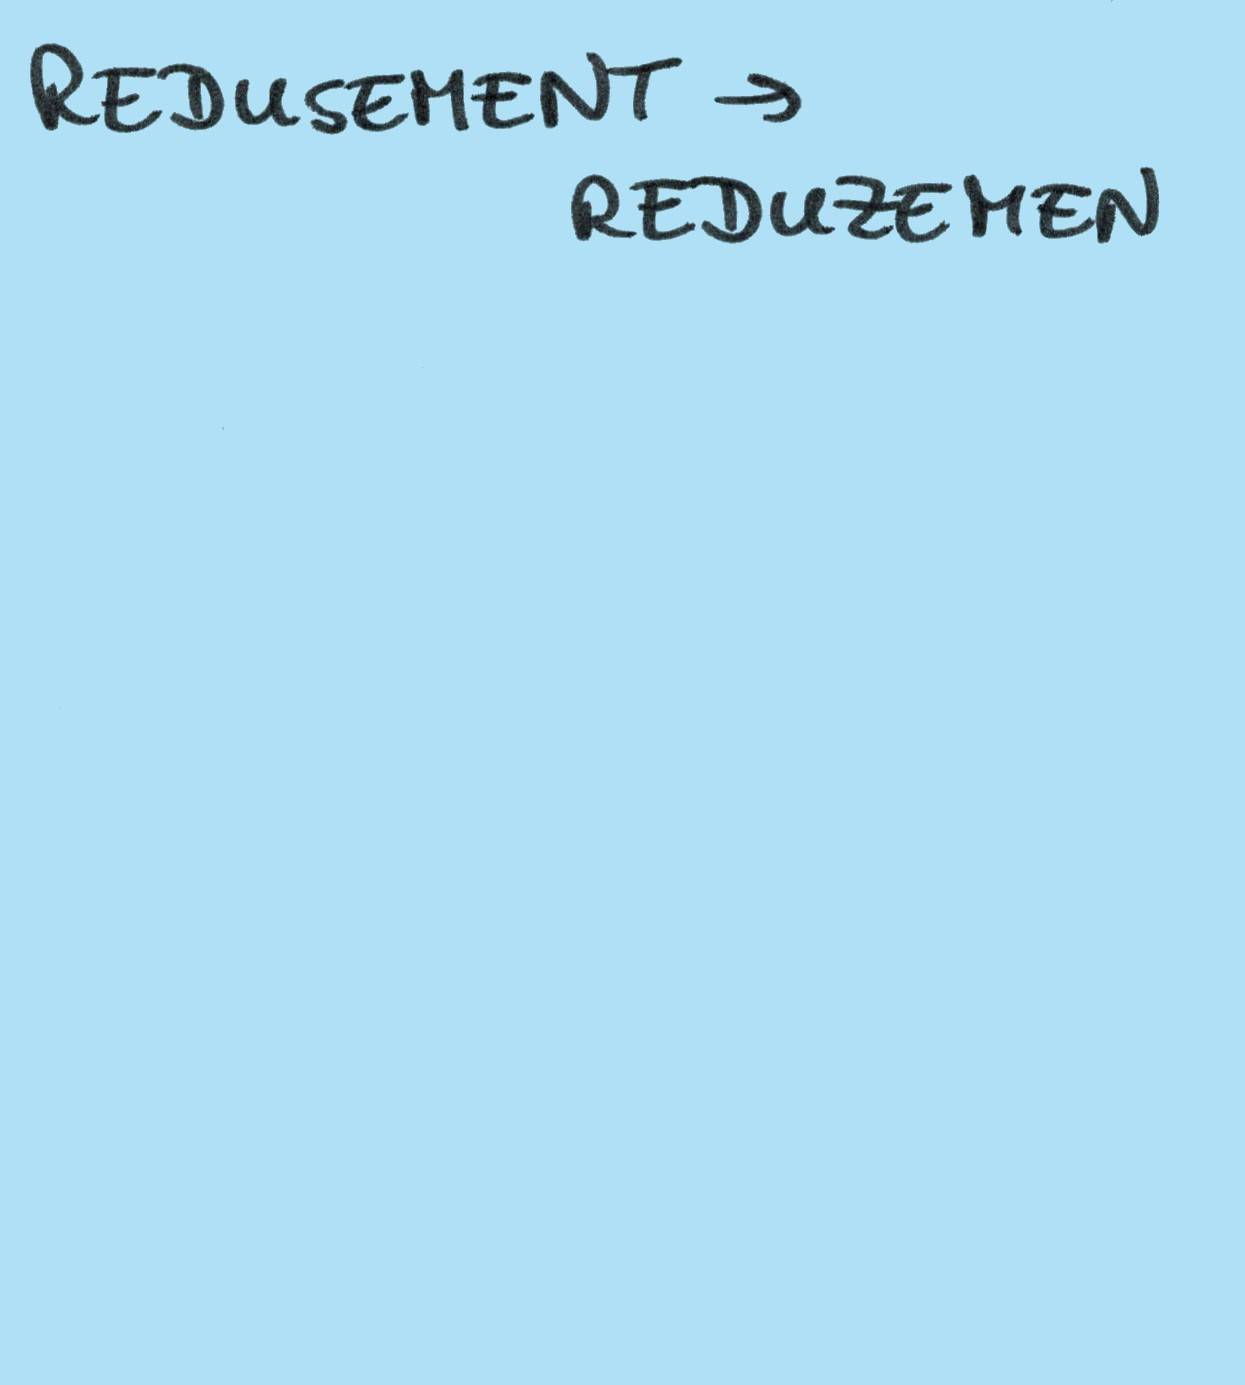 REDUSEMENT →
REDUZEMEN